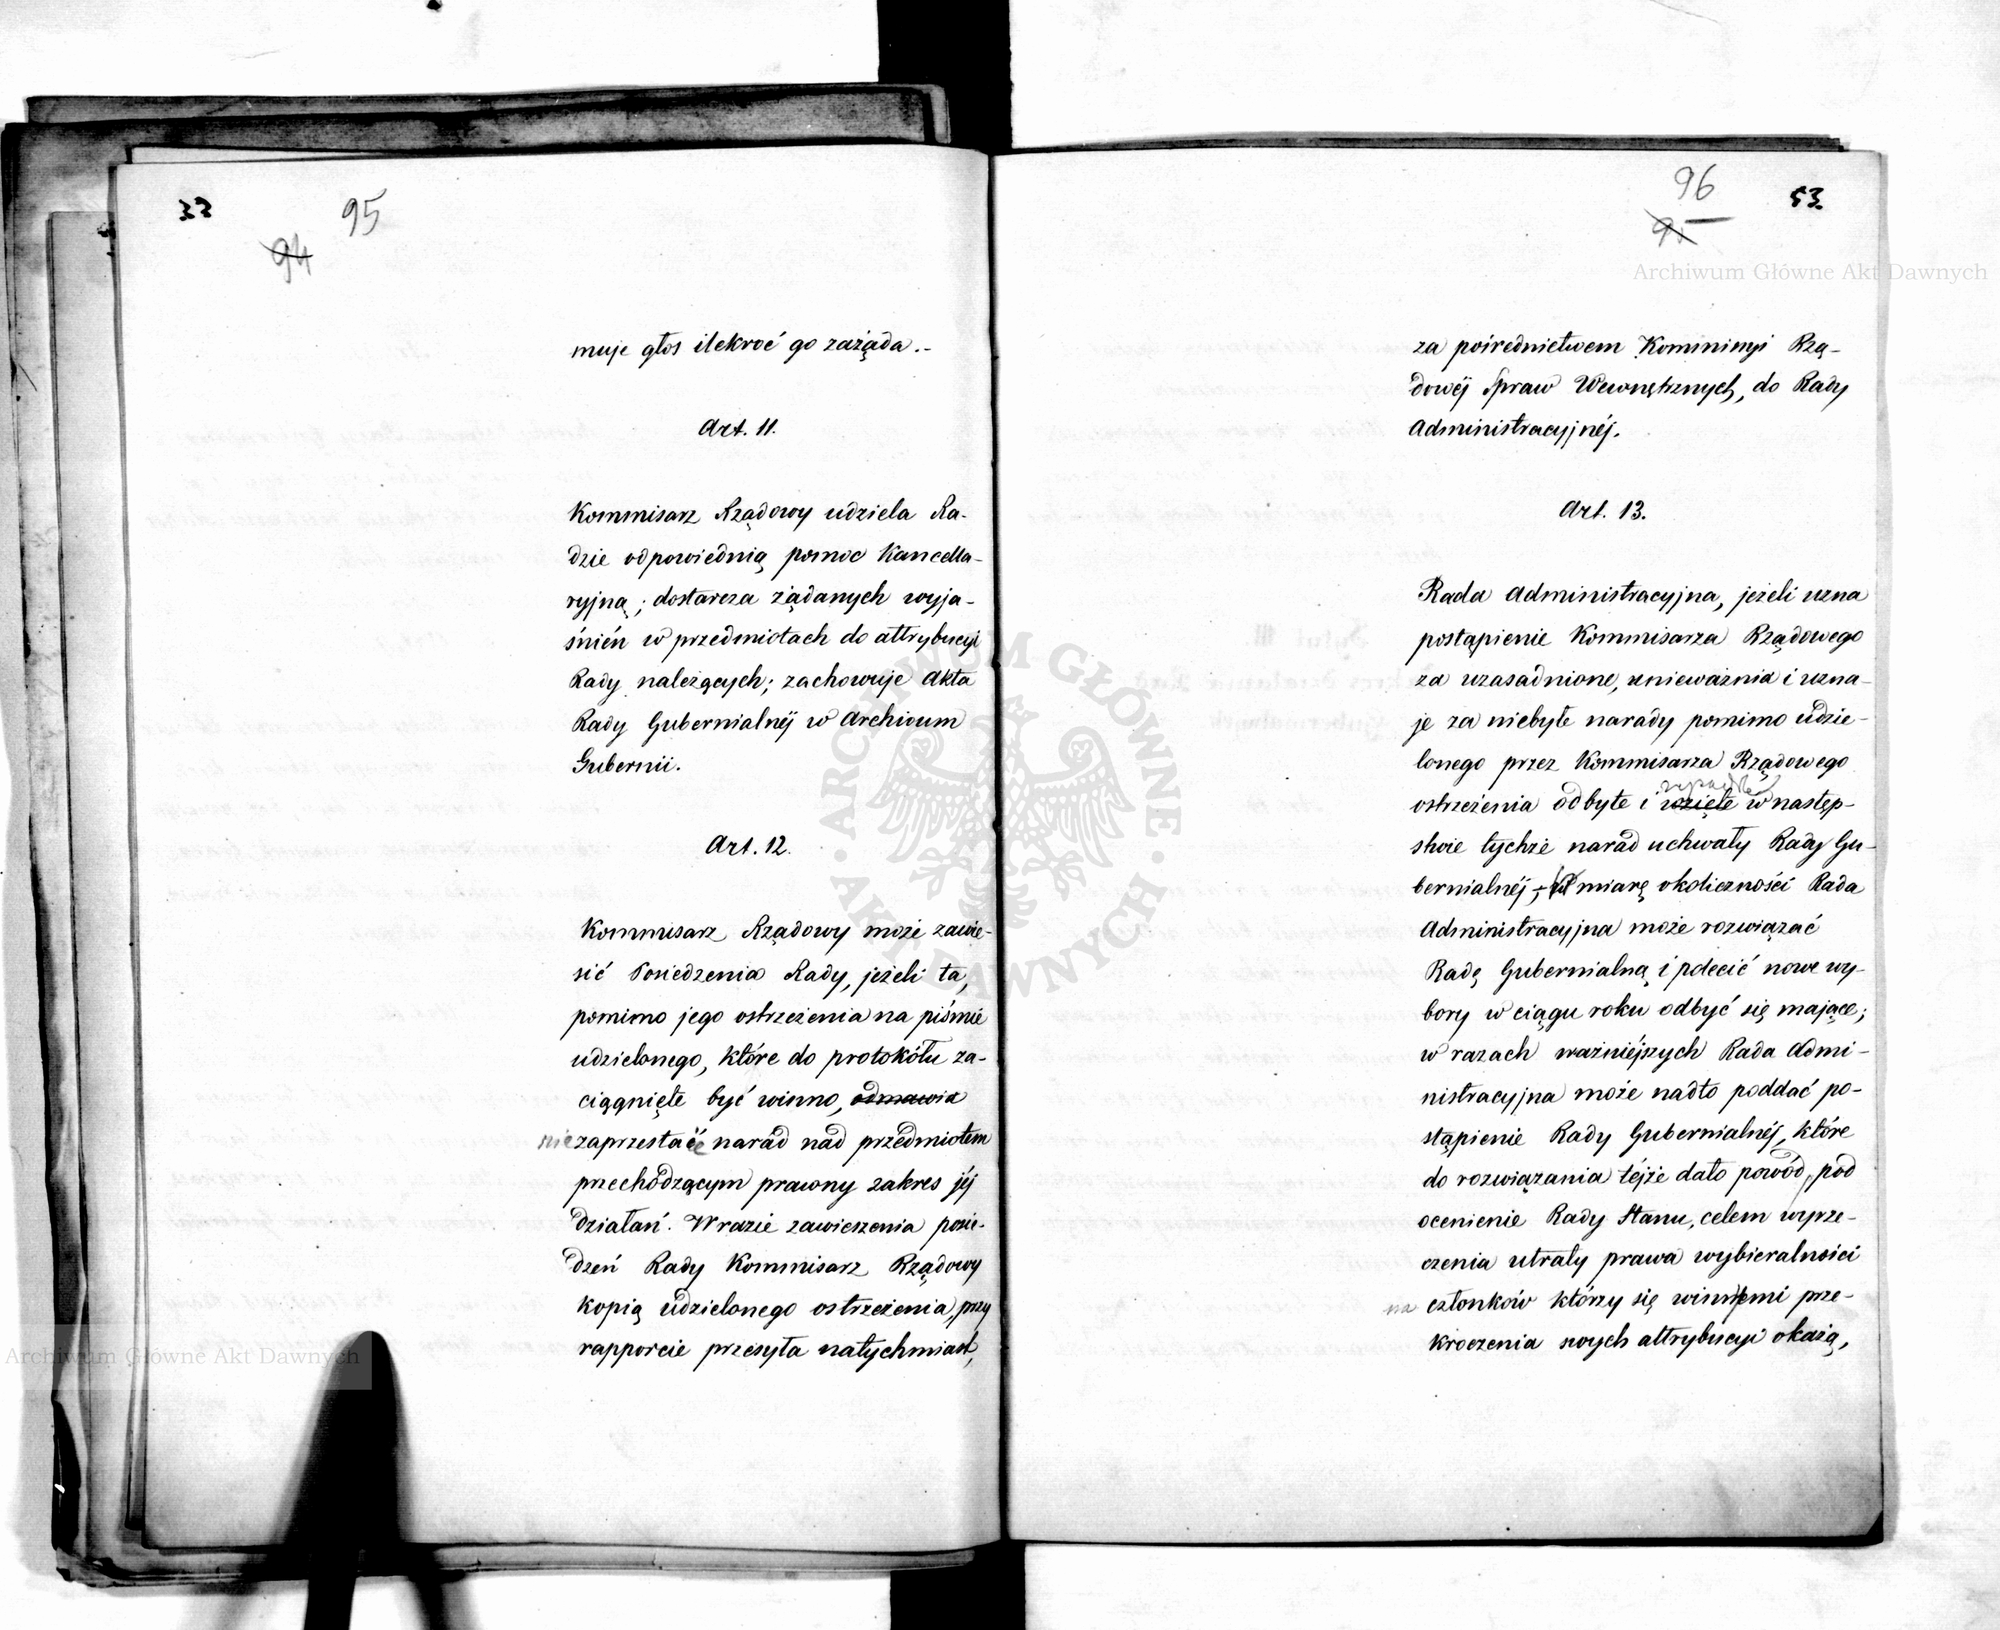 33
95
94
muje głos ilekroć go zażąda.-
Art. 11.
Kommisarz Rządowy udziela Ra-
dzie odpowiednią pomoc Kancella-
ryjną; dostarcza żądanych wyja-
śnień w przedmiotach do attrybucyi
Rady należących; zachowuje Akta
Rady Gubernialnéj w Archivum
Gubernii.
Art. 12.
Kommisarz Rządowy może zawie-
sić Posiedzenia Rady, jeżeli ta,
pomimo jego ostrzeżenia na piśmie
udzielonego, które do protokółu za-
ciągnięte być winno, odmawia
nie zaprzestaje narad nad przedmiotem
przechodzącym prawny zakres jéj
działań. W razie zawieszenia posie-
dzeń Rady Kommisarz Rządowy
kopią udzielonego ostrzeżenia, przy
rapporcie przesyła natychmiast,
96
53.
za pośrednictwem Kommissyi Rzą-
dowéj Spraw Wewnętrznych, do Rady
Administracyjnéj.
Art. 13.
Rada Administracyjna, jeżeli uzna
postąpienie Kommisarza Rządowego
za uzasadnione, unieważnia i uzna-
je za niebyłe narady pomimo udzie-
lonego przez Kommisarza Rządowego
zapadłe
ostrzeżenia odbyte i wzięte w następ-
stwie tychże narad uchwały Rady Gu-
bernialnéj; w miarę okoliczności Rada
Administracyjna może rozwiązać
Radę Gubernialną i polecić nowe wy-
bory w ciągu roku odbyć się mające;
w razach ważniéjszych Rada Admi-
nistracyjna może nadto poddać po-
stąpienie Rady Gubernialnéj, które
do rozwiązania téjże dało powód, pod
ocenienie Rady Stanu, celem wyrze-
czenia utraty prawa wybieralności
na członków którzy się winnemi prze-
kroczenia swych attrybucyi okażą,
Archiwum Główne Akt Dawnych
Archiwum Główne Akt Dawnych
ARCHIWUM GŁÓWNE · AKT DAWNYCH ·